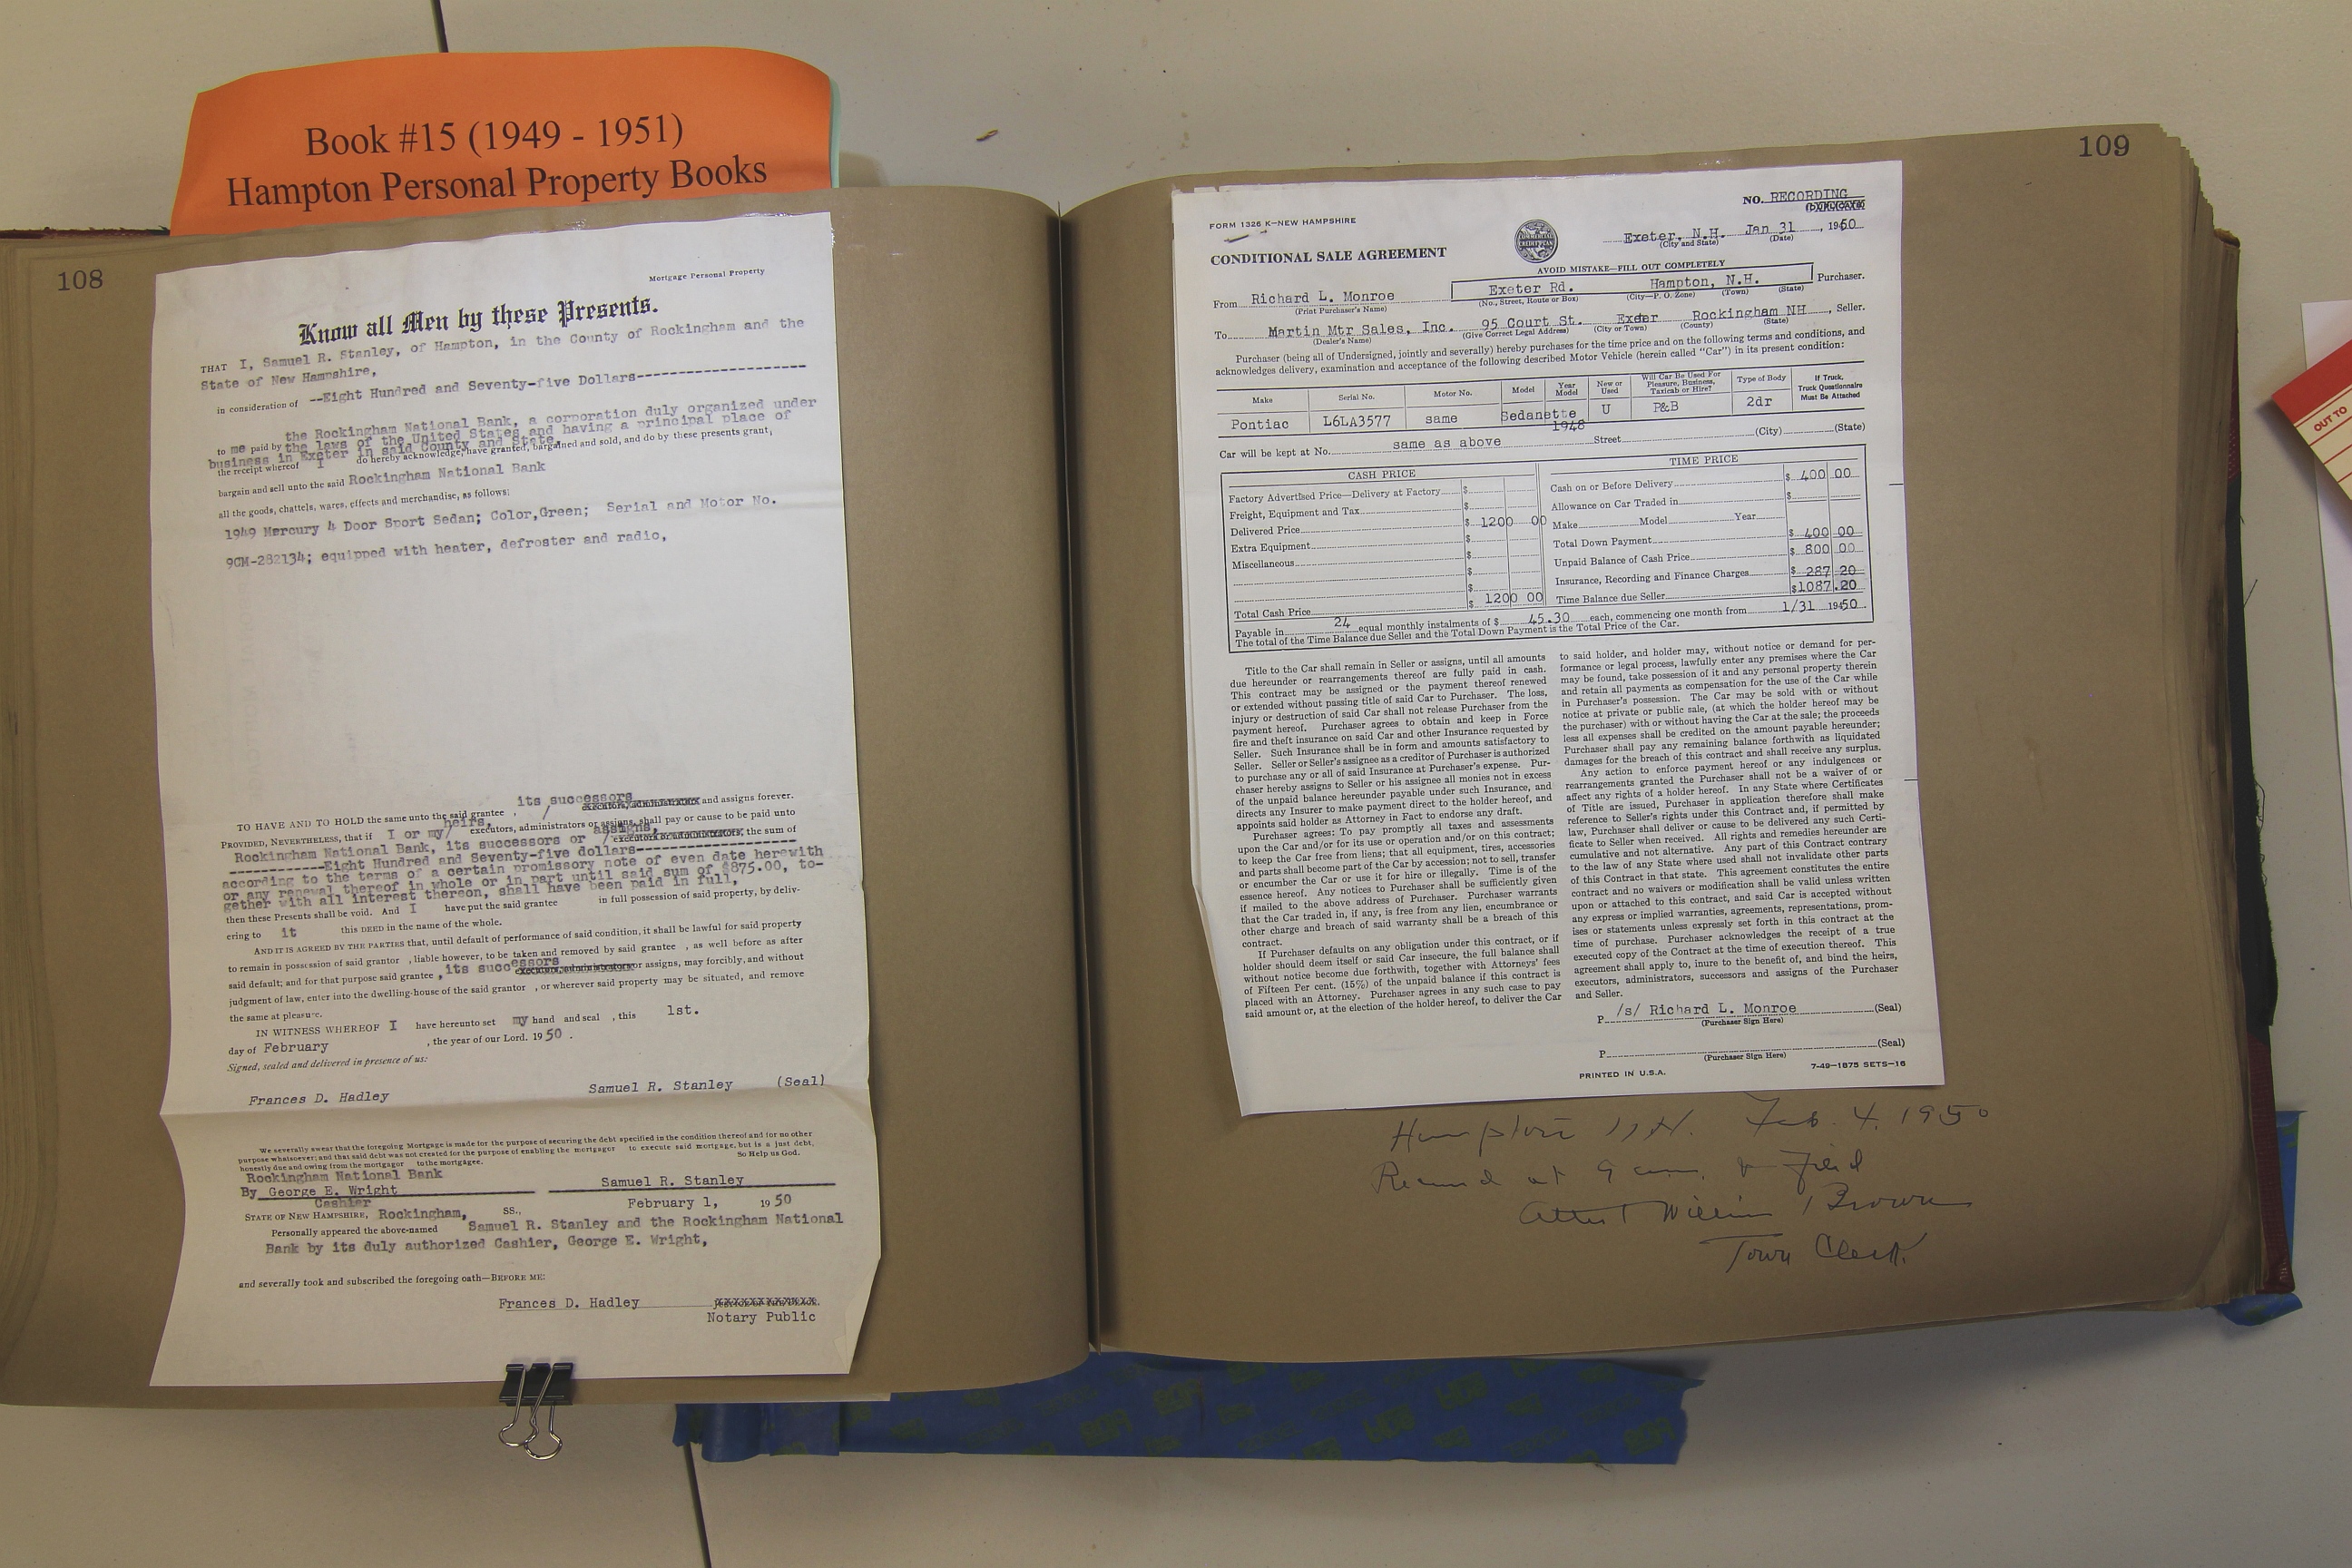 Book #15 (1949 - 1951)
Hampton Personal Property Books
108
Mortgage Personal Property
Know all Men by these Presents.
THAT I, Samuel R. Stanley, of Hampton, in the County of Rockingham and the
State of New Hampshire,
in consideration of --Eight Hundred and Seventy-five Dollars--------------------
the Rockingham National Bank, a corporation duly organized under
to me paid by the laws of the United States and having a principal place of
business in Exeter in said County and State,
the receipt whereof I do hereby acknowledge, have granted, bargained and sold, and do by these presents grant,
bargain and sell unto the said Rockingham National Bank
all the goods, chattels, wares, effects and merchandise, as follows:
1949 Mercury 4 Door Sport Sedan; Color,Green; Serial and Motor No.
9CM-282134; equipped with heater, defroster and radio,
its successors
TO HAVE AND TO HOLD the same unto the said grantee , / executors, administrators and assigns forever.
heirs,
PROVIDED, NEVERTHELESS, that if I or my/ executors, administrators or assigns, shall pay or cause to be paid unto
assigns,
Rockingham National Bank, its successors or / executors or administrators, the sum of
------------Eight Hundred and Seventy-five dollars--------------------
according to the terms of a certain promissory note of even date herewith
or any renewal thereof in whole or in part until said sum of $875.00, to-
gether with all interest thereon, shall have been paid in full,
then these Presents shall be void. And I have put the said grantee in full possession of said property, by deliv-
ering to it this DEED in the name of the whole.
AND IT IS AGREED BY THE PARTIES that, until default of performance of said condition, it shall be lawful for said property
to remain in possession of said grantor , liable however, to be taken and removed by said grantee , as well before as after
said default; and for that purpose said grantee , its successors executors, administrators or assigns, may forcibly, and without
judgment of law, enter into the dwelling-house of the said grantor , or wherever said property may be situated, and remove
the same at pleasure.
IN WITNESS WHEREOF I have hereunto set my hand and seal , this 1st.
day of February , the year of our Lord. 1950 .
Signed, sealed and delivered in presence of us:
Samuel R. Stanley (Seal)
Frances D. Hadley
We severally swear that the foregoing Mortgage is made for the purpose of securing the debt specified in the condition thereof and for no other
purpose whatsoever; and that said debt was not created for the purpose of enabling the mortgagor to execute said mortgage, but is a just debt,
honestly due and owing from the mortgagor to the mortgagee. So Help us God.
Rockingham National Bank
By George E. Wright Samuel R. Stanley
Cashier
STATE OF NEW HAMPSHIRE, Rockingham, SS., February 1, 1950
Personally appeared the above-named Samuel R. Stanley and the Rockingham National
Bank by its duly authorized Cashier, George E. Wright,
and severally took and subscribed the foregoing oath—BEFORE ME:
Frances D. Hadley
Notary Public
109
NO. RECORDING
FORM 1326 K—NEW HAMPSHIRE
Exeter, N.H. Jan 31 , 1950
(City and State) (Date)
CONDITIONAL SALE AGREEMENT
AVOID MISTAKE—FILL OUT COMPLETELY
From Richard L. Monroe Exeter Rd. Hampton, N.H. Purchaser.
(Print Purchaser's Name) (No., Street, Route or Box) (City—P. O. Zone) (Town) (State)
To Martin Mtr Sales, Inc. 95 Court St. Exeter Rockingham NH , Seller.
(Dealer's Name) (Give Correct Legal Address) (City or Town) (County) (State)
Purchaser (being all of Undersigned, jointly and severally) hereby purchases for the time price and on the following terms and conditions, and
acknowledges delivery, examination and acceptance of the following described Motor Vehicle (herein called "Car") in its present condition:
Make Serial No. Motor No. Model Year Model New or Used Will Car Be Used For Pleasure, Business, Taxicab or Hire? Type of Body If Truck, Truck Questionnaire Must Be Attached
Pontiac L6LA3577 same Sedanette 1948 U P&B 2dr
Car will be kept at No. same as above Street (City) (State)
CASH PRICE
Factory Advertised Price—Delivery at Factory $
Freight, Equipment and Tax $
Delivered Price $ 1200 00
Extra Equipment $
Miscellaneous $
$
$
Total Cash Price $ 1200 00
TIME PRICE
Cash on or Before Delivery $ 400 00
Allowance on Car Traded in $
Make Model Year
Total Down Payment $ 400 00
Unpaid Balance of Cash Price $ 800 00
Insurance, Recording and Finance Charges $ 287 20
Time Balance due Seller $1087.20
Payable in 24 equal monthly instalments of $ 45.30 each, commencing one month from 1/31 1950
The total of the Time Balance due Seller and the Total Down Payment is the Total Price of the Car.
Title to the Car shall remain in Seller or assigns, until all amounts
due hereunder or rearrangements thereof are fully paid in cash.
This contract may be assigned or the payment thereof renewed
or extended without passing title of said Car to Purchaser. The loss,
injury or destruction of said Car shall not release Purchaser from the
payment hereof. Purchaser agrees to obtain and keep in Force
fire and theft insurance on said Car and other Insurance requested by
Seller. Such Insurance shall be in form and amounts satisfactory to
Seller. Seller or Seller's assignee as a creditor of Purchaser is authorized
to purchase any or all of said Insurance at Purchaser's expense. Pur-
chaser hereby assigns to Seller or his assignee all monies not in excess
of the unpaid balance hereunder payable under such Insurance, and
directs any Insurer to make payment direct to the holder hereof, and
appoints said holder as Attorney in Fact to endorse any draft.
Purchaser agrees: To pay promptly all taxes and assessments
upon the Car and/or for its use or operation and/or on this contract;
to keep the Car free from liens; that all equipment, tires, accessories
and parts shall become part of the Car by accession; not to sell, transfer
or encumber the Car or use it for hire or illegally. Time is of the
essence hereof. Any notices to Purchaser shall be sufficiently given
if mailed to the above address of Purchaser. Purchaser warrants
that the Car traded in, if any, is free from any lien, encumbrance or
other charge and breach of said warranty shall be a breach of this
contract.
If Purchaser defaults on any obligation under this contract, or if
holder should deem itself or said Car insecure, the full balance shall
without notice become due forthwith, together with Attorneys' fees
of Fifteen Per cent. (15%) of the unpaid balance if this contract is
placed with an Attorney. Purchaser agrees in any such case to pay
said amount or, at the election of the holder hereof, to deliver the Car
to said holder, and holder may, without notice or demand for per-
formance or legal process, lawfully enter any premises where the Car
may be found, take possession of it and any personal property therein
and retain all payments as compensation for the use of the Car while
in Purchaser's possession. The Car may be sold with or without
notice at private or public sale, (at which the holder hereof may be
the purchaser) with or without having the Car at the sale; the proceeds
less all expenses shall be credited on the amount payable hereunder;
Purchaser shall pay any remaining balance forthwith as liquidated
damages for the breach of this contract and shall receive any surplus.
Any action to enforce payment hereof or any indulgences or
rearrangements granted the Purchaser shall not be a waiver of or
affect any rights of a holder hereof. In any State where Certificates
of Title are issued, Purchaser in application therefor shall make
reference to Seller's rights under this Contract and, if permitted by
law, Purchaser shall deliver or cause to be delivered any such Certi-
ficate to Seller when received. All rights and remedies hereunder are
cumulative and not alternative. Any part of this Contract contrary
to the law of any State where used shall not invalidate other parts
of this Contract in that state. This agreement constitutes the entire
contract and no waivers or modification shall be valid unless written
upon or attached to this contract, and said Car is accepted without
any express or implied warranties, agreements, representations, prom-
ises or statements unless expressly set forth in this contract at the
time of purchase. Purchaser acknowledges the receipt of a true
executed copy of the Contract at the time of execution thereof. This
agreement shall apply to, inure to the benefit of, and bind the heirs,
executors, administrators, successors and assigns of the Purchaser
and Seller.
P /s/ Richard L. Monroe (Seal)
(Purchaser Sign Here)
P (Seal)
(Purchaser Sign Here)
PRINTED IN U.S.A. 7-49—1875 SETS—16
Hampton N.H. Feb. 4, 1950
Received at 9 am & filed
Attest William Brown
Town Clerk
OUT TO